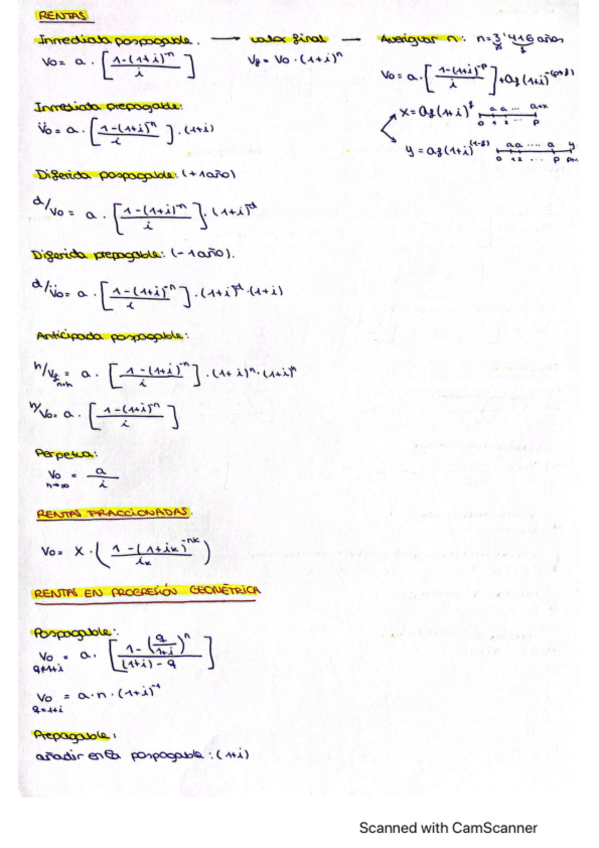 RENTAS
Inmediata pospagable. → valor final → Averiguar n: n=3'416 años
V0 = a · [1-(1+i)^-n / i]
Vf = V0 · (1+i)^n
V0 = a · [1-(1+i)^-p / i] + af(1+i)^-(p+f)
x = af(1+i)^f
0 1 2 ... p
a a ... a+x
y = af(1+i)^(1-f)
0 1 2 ... p p+1
a a .... a y
Inmediata prepagable:
V̈0 = a · [1-(1+i)^-n / i] · (1+i)
Diferida pospagable: (+1año)
d/V0 = a · [1-(1+i)^-n / i] · (1+i)^-d
Diferida prepagable: (-1año).
d/V̈0 = a · [1-(1+i)^-n / i] · (1+i)^-d · (1+i)
Anticipada pospagable:
h/Vf n+h = a · [1-(1+i)^-n / i] · (1+i)^n · (1+i)^h
h/V0 = a · [1-(1+i)^-n / i]
Perpetua:
V0 n→∞ = a / i
RENTAS FRACCIONADAS.
V0 = x · (1-(1+ik)^-nk / ik)
RENTAS EN PROGRESIÓN GEOMÉTRICA
Pospagable:
V0 q≠1+i = a · [1-(q/1+i)^n / (1+i)-q]
V0 q=1+i = a·n·(1+i)^-1
Prepagable:
añadir en la pospagable: (1+i)
Scanned with CamScanner